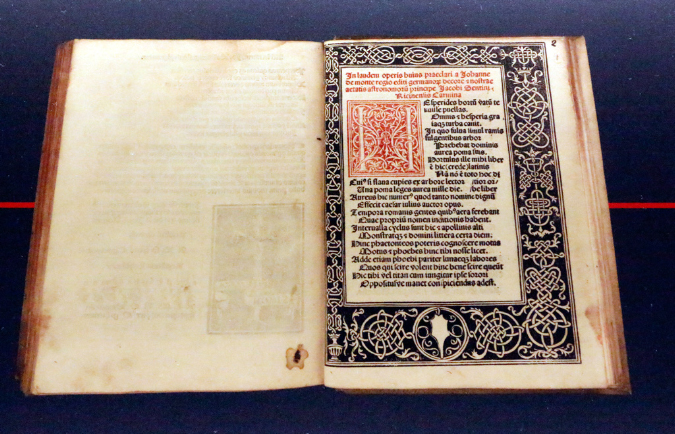 2
In laudem operis huius praeclari a Iohanne
de monte regio editi germanoꝝ decore ⁊ nostrae
aetatis astronomoꝝ principe Jacobi Sentini
Ricinensis Carmina
HEsperides hortū vatū te
tquille puellas.
Omnis ⁊ hesperia gra
iaqꝫ turba canit.
In quo fulua simul ramis
fulgentibus arbor
Praebebat dominis
aurea poma suis.
Hortulus ille mihi liber
ē hic (crede) latinis
Nā nō ē toto hoc di
tior or/be liber
Cuiꝰ si flaua cupies ex arbore lector
Una poma leges aurea mille die.
Aureus hic numerꝰ quod tanto nomine dignū
Effecit caesar iulius auctor opus.
Tempora romanis gentes quibꝰ aera ferebant
Quae propriū nomen indictionis habent.
Interualla cyclus sunt hic ⁊ apollinis alti
Monstratqꝫ ⁊ domini littera certa diem.
Hinc phaetonteos poteris cognoscere motus
Motus ⁊ phoebes hinc tibi nosse licet.
Adde etiam phoebi pariter lunaeqꝫ labores
Quos qui scire volent hinc bene scire queūt
Hic tibi vel titan cum iungitur ipse sorori
Oppositusve manet conspiciendus adest.